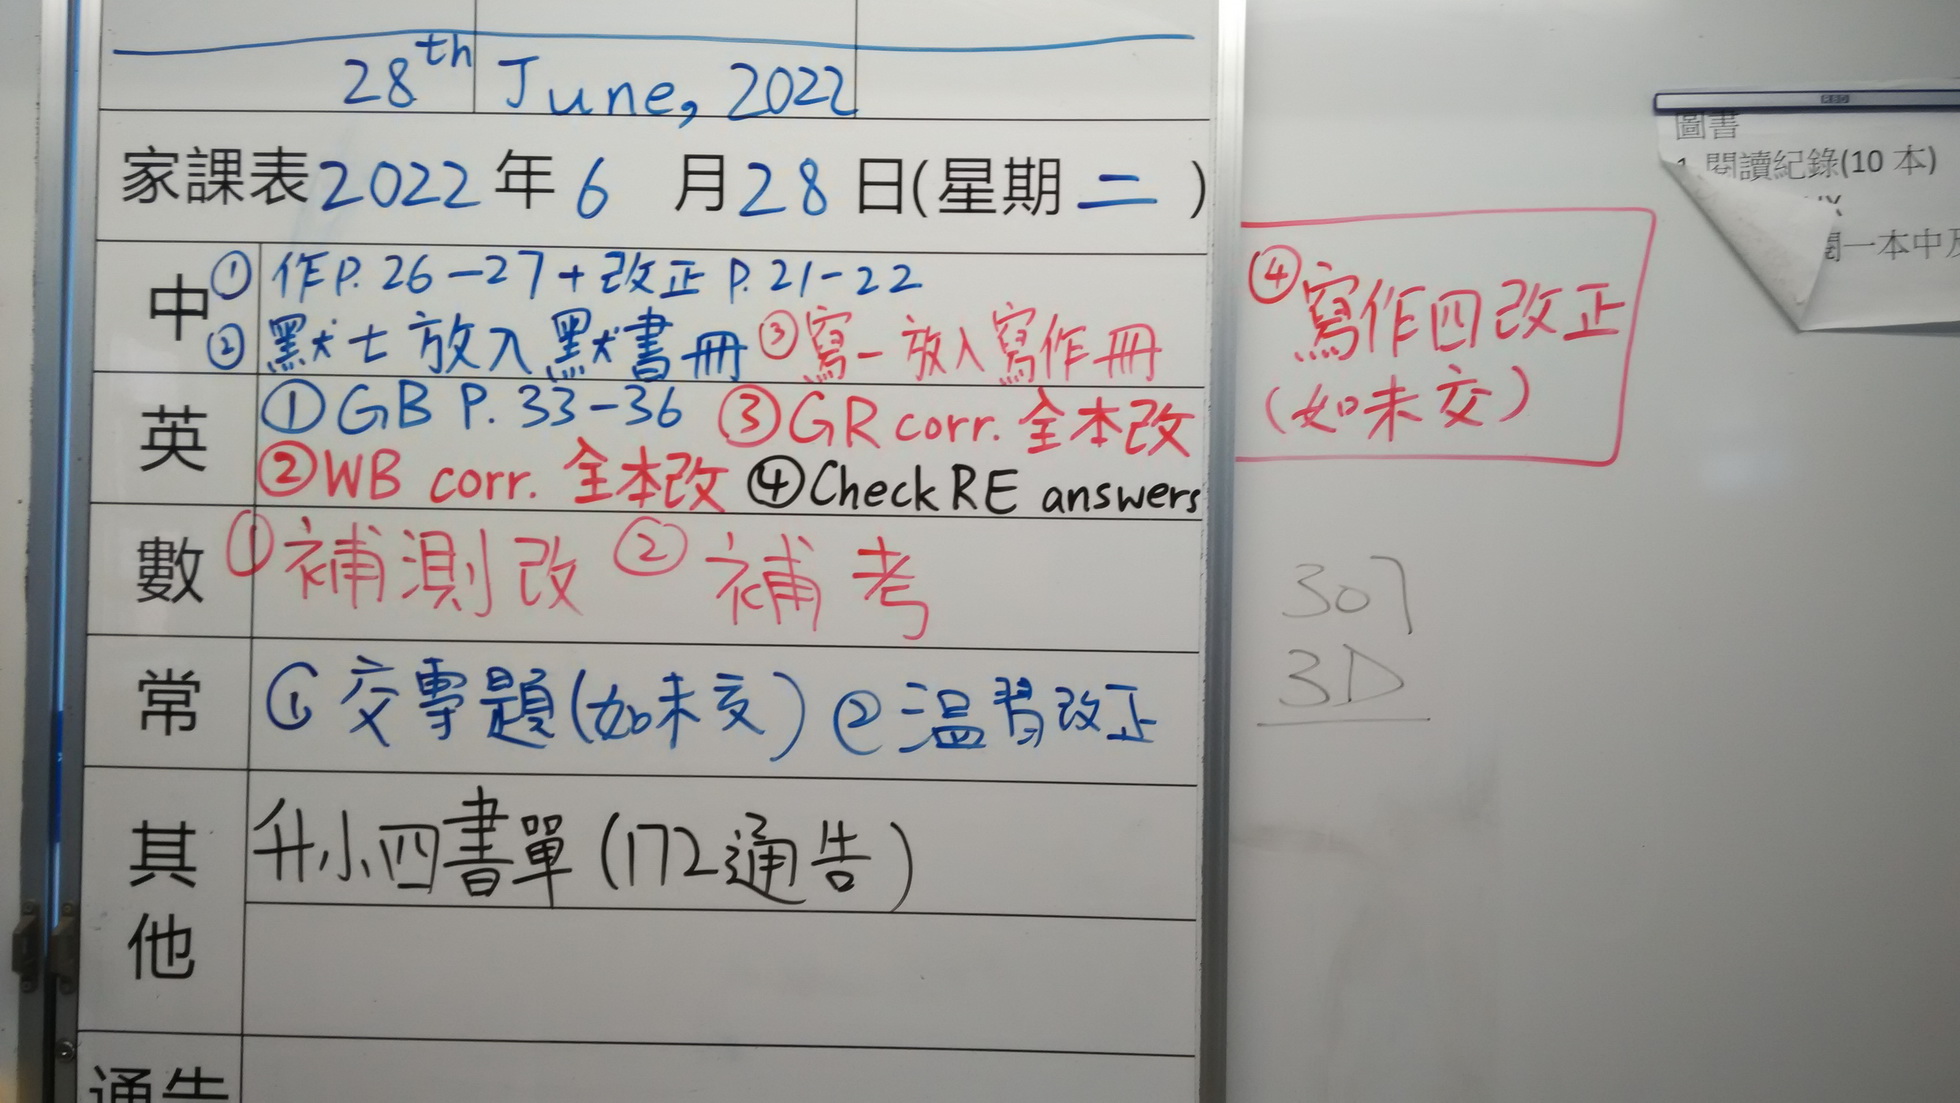 28th June, 2022
家課表2022年6月28日(星期二)
中
① 作P.26-27+改正P.21-22
② 默七放入默書冊 ③寫一放入寫作冊
④寫作四改正
(如未交)
英
①GB P.33-36 ③GR corr. 全本改
②WB corr. 全本改 ④Check RE answers
數
①補測改 ②補考
常
① 交專題(如未交) ②溫習改正
其他
升小四書單(172通告)
通告
307
3D
圖書
1. 閱讀紀錄(10 本)
一本中